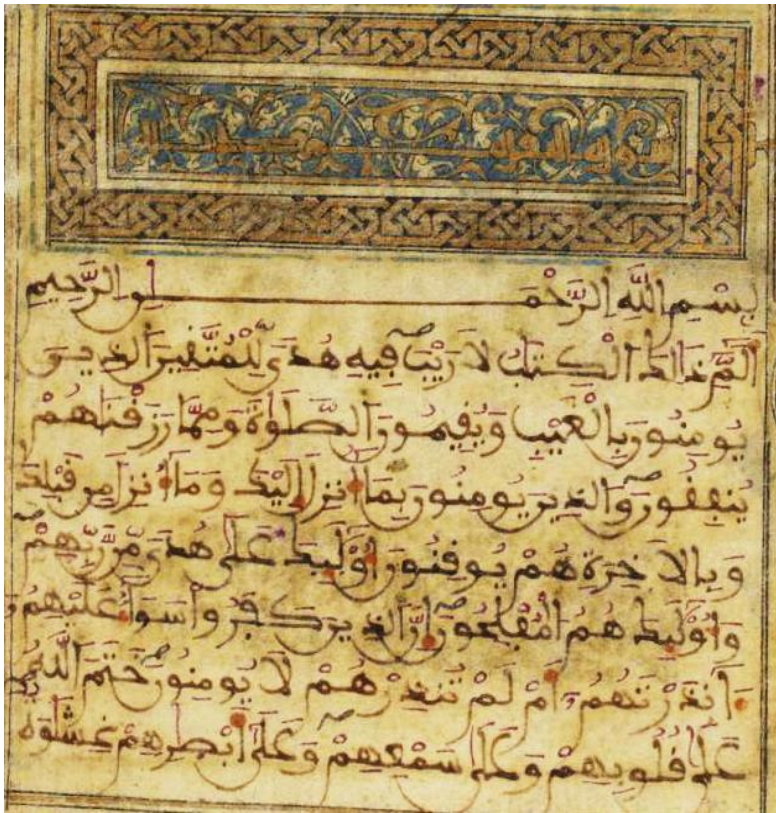 بِسْمِ اللَّهِ الرَّحْمَـــــــنِ الرَّحِيمِ
أَلَمِّ ذَٰلِكَ الْكِتَٰبُ لَا رَيْبَ فِيهِ هُدًى لِّلْمُتَّقِينَ الذِينَ
يُومِنُونَ بِالْغَيْبِ وَيُقِيمُونَ الصَّلَوٰةَ وَمِمَّا رَزَقْنَٰهُمْ
يُنفِقُونَ وَالذِينَ يُومِنُونَ بِمَا أُنزِلَ إِلَيْكَ وَمَا أُنزِلَ مِن قَبْلِكَ
وَبِالَاخِرَةِ هُمْ يُوقِنُونَ أُوْلَٰئِكَ عَلَىٰ هُدًى مِّن رَّبِّهِمْ
وَأُوْلَٰئِكَ هُمُ الْمُفْلِحُونَ إِنَّ الذِينَ كَفَرُوا سَوَاءٌ عَلَيْهِمُ
ءَآنذَرْتَهُمُ أَمْ لَمْ تُنذِرْهُمْ لَا يُومِنُونَ خَتَمَ اللَّهُ
عَلَىٰ قُلُوبِهِمْ وَعَلَىٰ سَمْعِهِمْ وَعَلَىٰ أَبْصَٰرِهِمْ غِشَٰوَةٌ